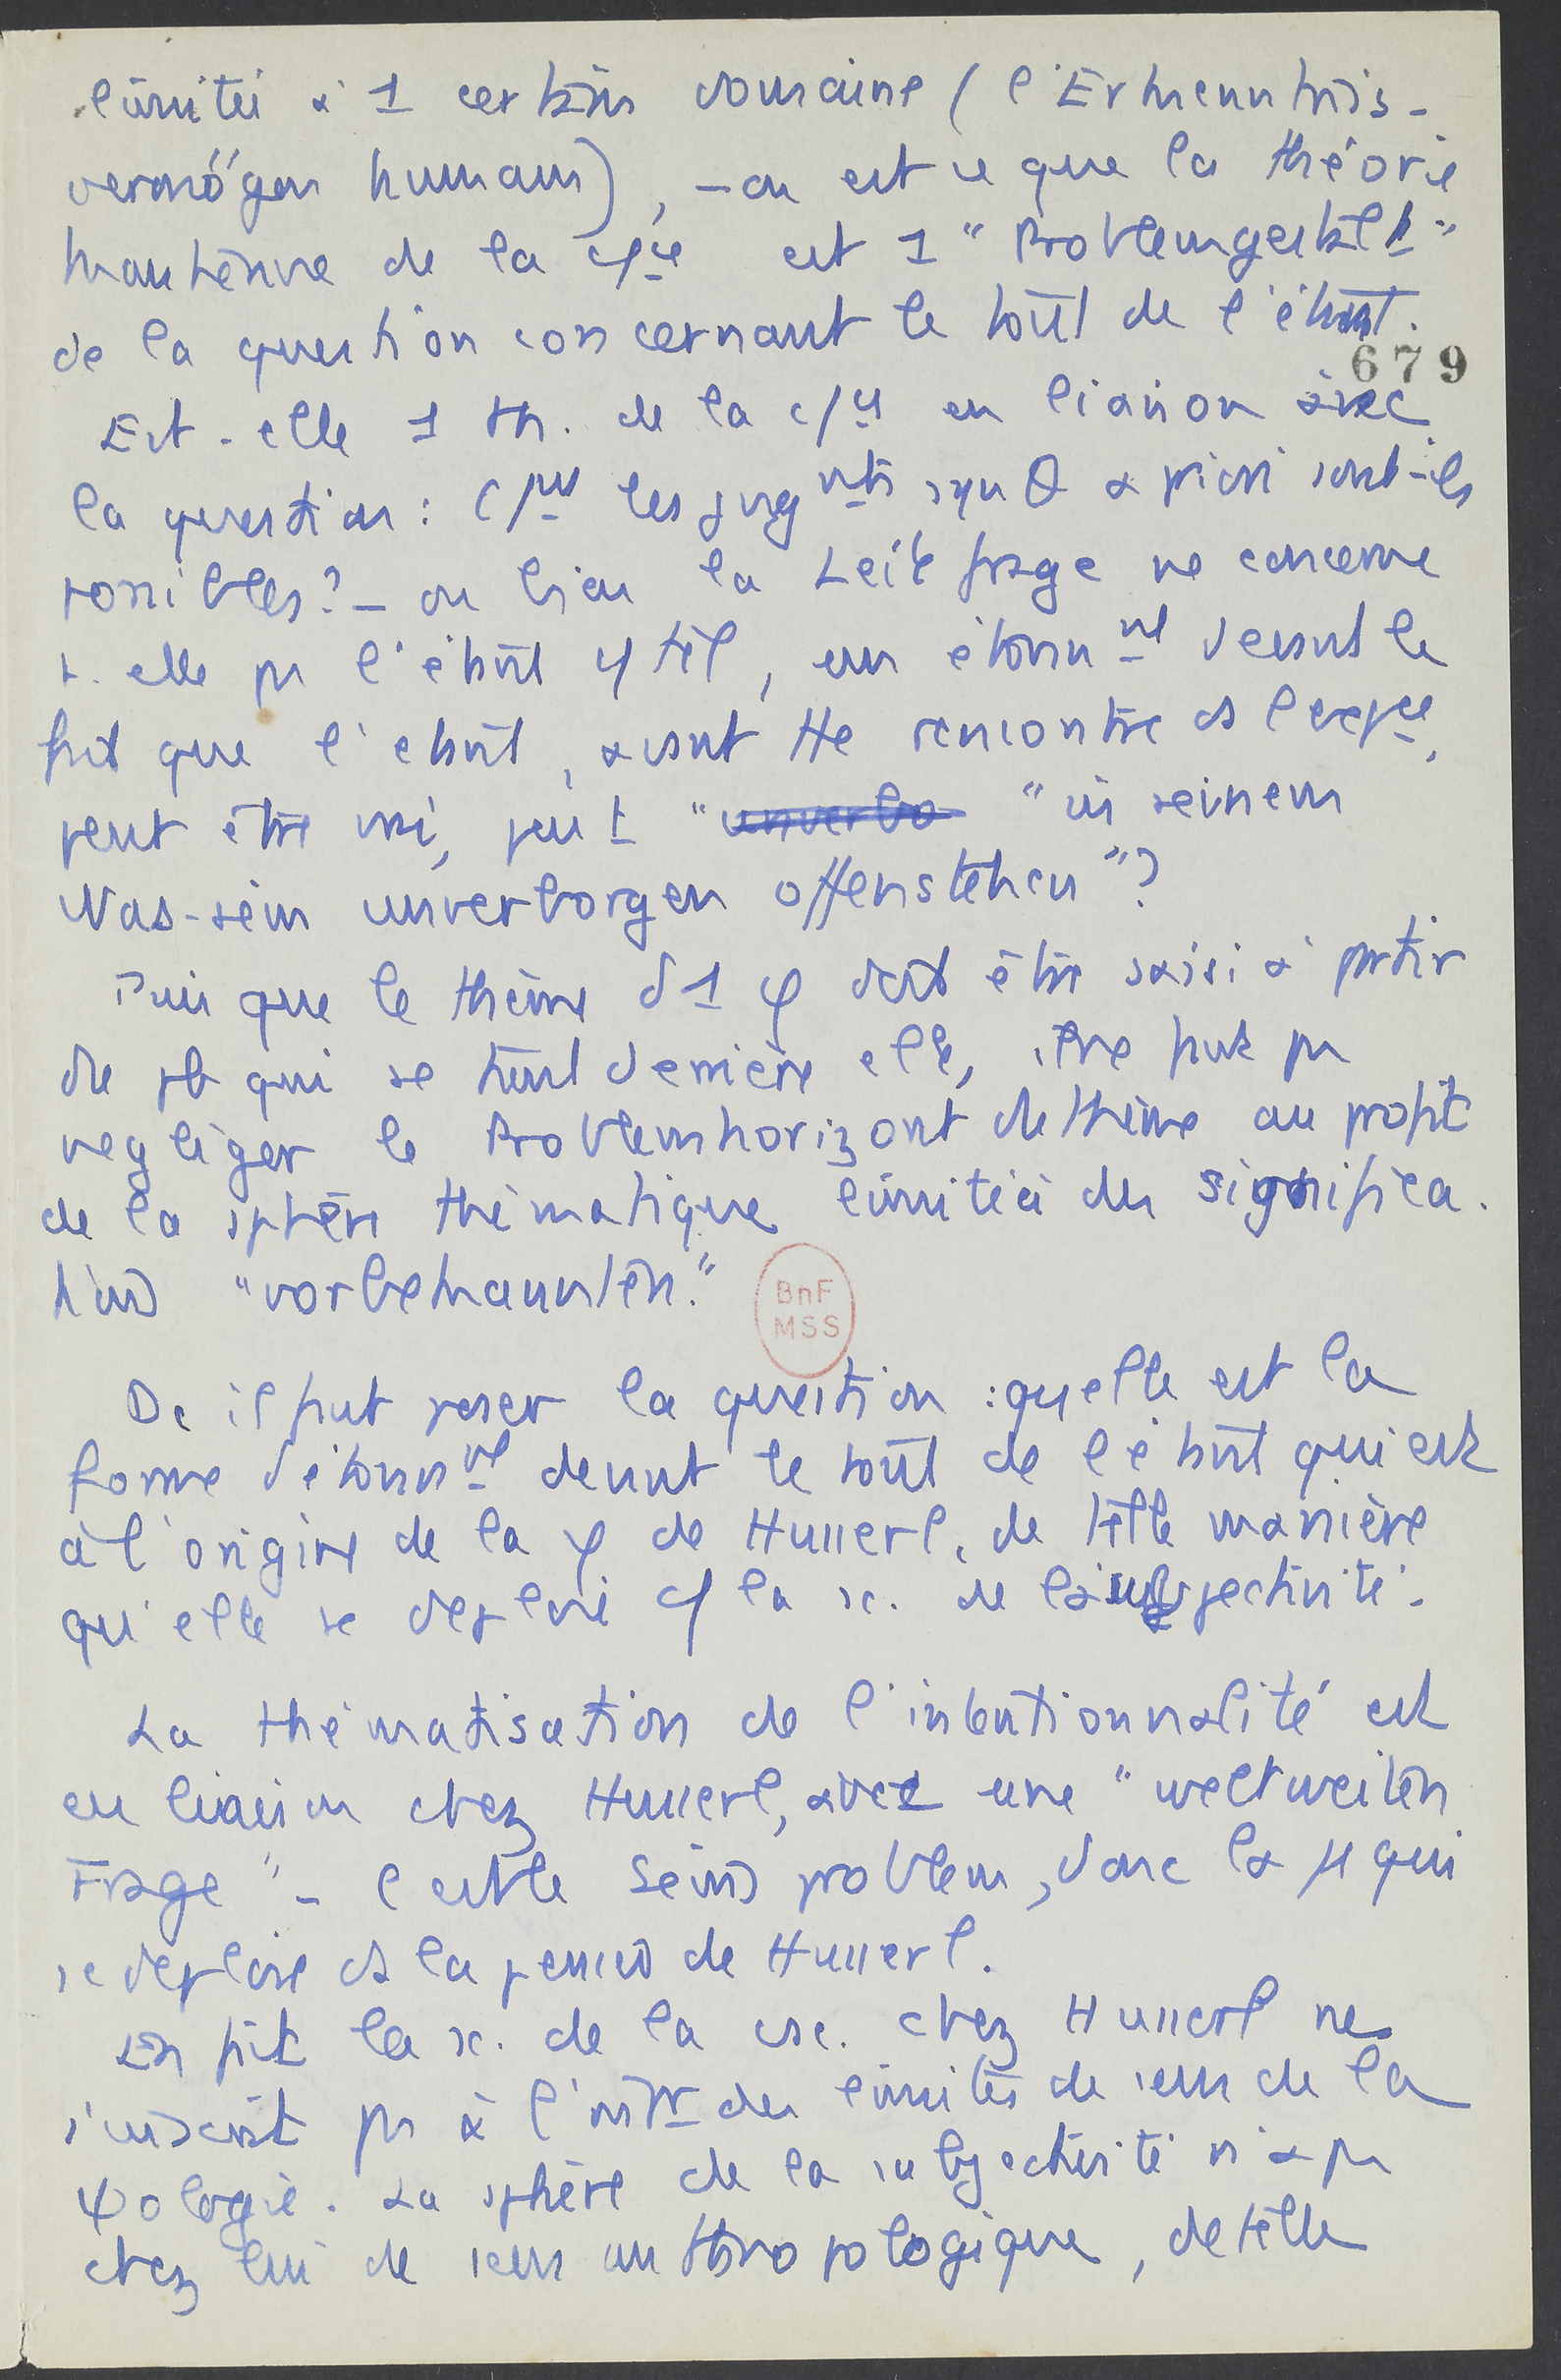 limitée à 1 certain domaine (l'Erkenntnis-
vermögen humain), - ou est ce que la théorie
kantienne de la c/ce est 1 "Problemgestalt"
de la question concernant le tout de l'étant.
679
Est-elle 1 th. de la c/ce en liaison avec
la question : c/mt les jugmts synθ a priori sont-ils
possibles? - ou bien la Leitfrage ne concerne
t. elle pas l'étant c/ tel, un étonnmt devant le
fait que l'étant, avant tte rencontre ds l'expce,
peut être vrai, peut "unverbo "in seinem
Was-sein unverborgen offenstehen"?
Puisque le thème d'1 φ doit être saisi à partir
du pb qui se tient derrière elle, il ne faut pas
négliger le Problemhorizont du thème au profit
de la sphère thématique limitée des significa-
tions "vorbekannten."
BnF
MSS
Dc il faut poser la question : quelle est la
forme d'étonnmt devant le tout de l'étant qui est
à l'origine de la φ de Husserl, de telle manière
qu'elle se déploie c/ la sc. de la subjectivité.
La thématisation de l'intentionnalité est
en liaison chez Husserl, avec une "weltweiten
Frage" - c'est le Seinsproblem, donc la φ qui
se déploie ds la pensée de Husserl.
En fait la sc. de la csc. chez Husserl ne
s'inscrit pas à l'intr des limites de sens de la
ψologie. La sphère de la subjectivité n'a pas
chez lui de sens anthropologique, de telle